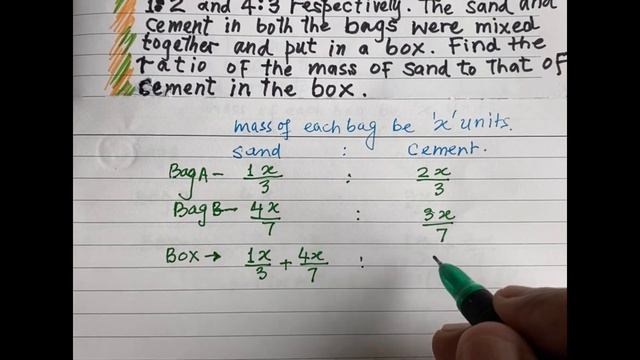 1:2 and 4:3 respectively. The sand and
cement in both the bags were mixed
together and put in a box. Find the
ratio of the mass of sand to that of
cement in the box.
mass of each bag be 'x' units.
sand : cement.
Bag A – 1x/3 : 2x/3
Bag B – 4x/7 : 3x/7
BOX → 1x/3 + 4x/7 :